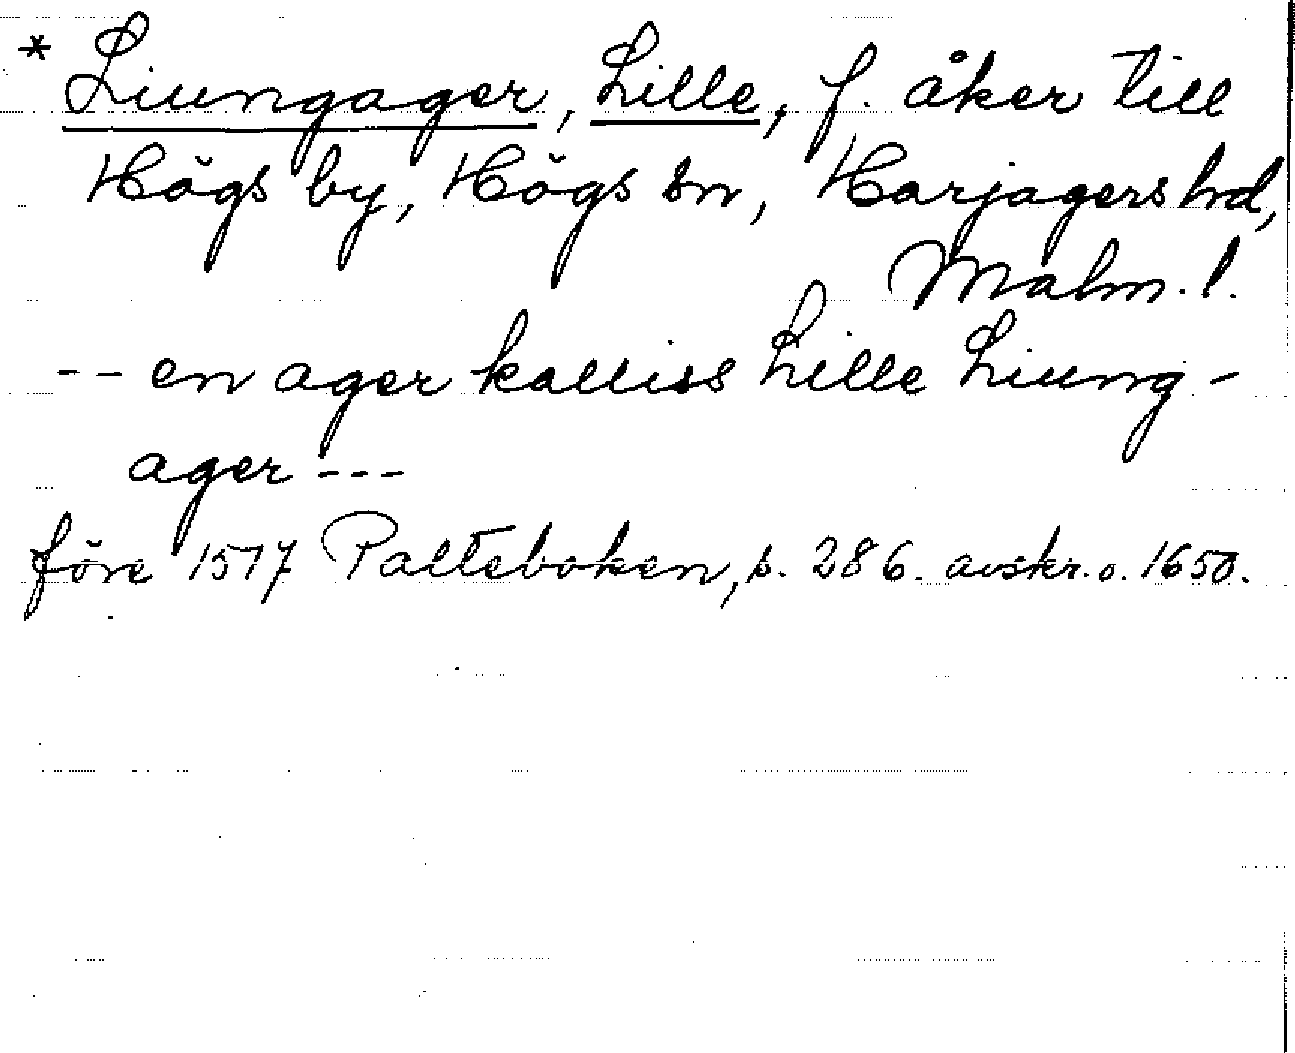 * Liungager, Lille, f. åker till
Högs by, Högs sn, Harjagers hd,
Malm. l.
-- en ager kalliss Lille Liung-
ager ---
före 1577 Palteboken, s. 286. avskr. o. 1650.